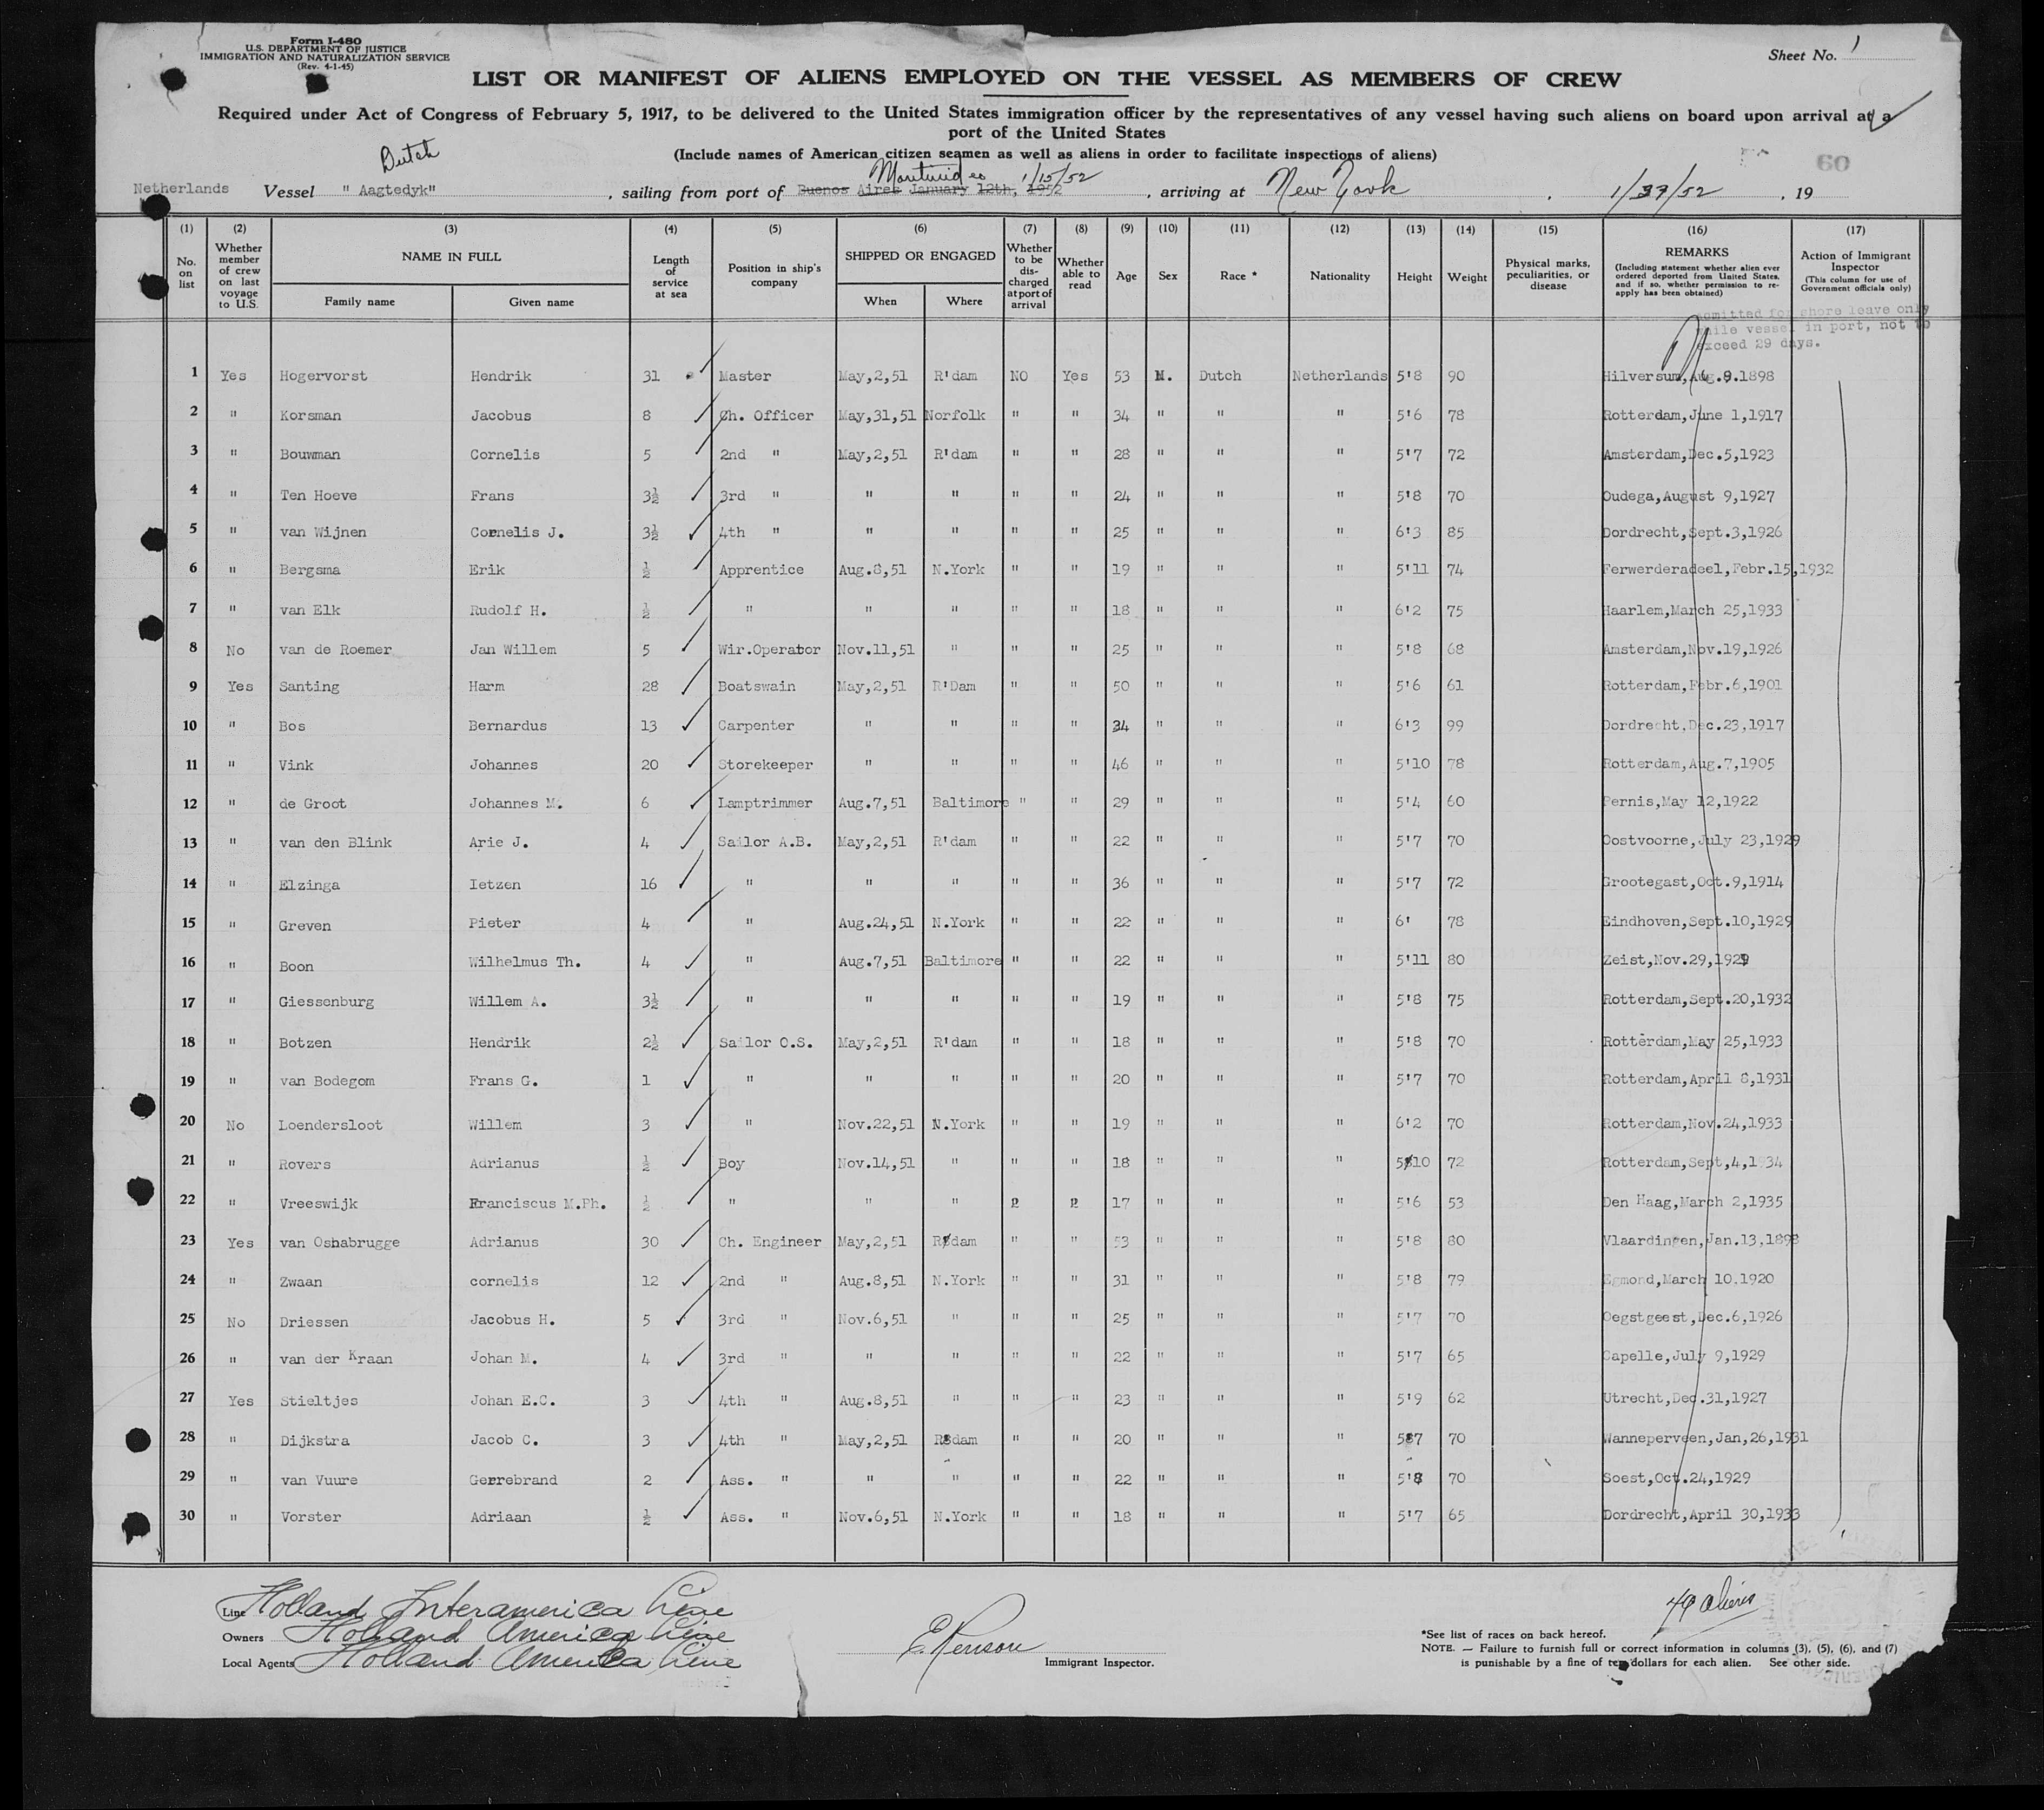 Form I-480
U.S. DEPARTMENT OF JUSTICE
IMMIGRATION AND NATURALIZATION SERVICE
(Rev. 4-1-45)
Sheet No. 1
LIST OR MANIFEST OF ALIENS EMPLOYED ON THE VESSEL AS MEMBERS OF CREW
Required under Act of Congress of February 5, 1917, to be delivered to the United States immigration officer by the representatives of any vessel having such aliens on board upon arrival at a
port of the United States
(Include names of American citizen seamen as well as aliens in order to facilitate inspections of aliens)
Dutch
60
Montevideo 1/15/52
Netherlands Vessel " Aagtedyk" , sailing from port of Buenos Aires January 12th, 1952 , arriving at New York . , 19
(1) (2) (3) (4) (5) (6) (7) (8) (9) (10) (11) (12) (13) (14) (15) (16) (17)
No. on list Whether member of crew on last voyage to U.S. NAME IN FULL Family name Given name Length of service at sea Position in ship's company SHIPPED OR ENGAGED When Where Whether to be dis-charged at port of arrival Whether able to read Age Sex Race * Nationality Height Weight Physical marks, peculiarities, or disease REMARKS (Including statement whether alien ever ordered deported from United States, and if so, whether permission to re-apply has been obtained) Action of Immigrant Inspector (This column for use of Government officials only)
admitted for shore leave only
while vessel in port, not to
exceed 29 days.
1 Yes Hogervorst Hendrik 31 Master May,2,51 R'dam NO Yes 53 M. Dutch Netherlands 5'8 90 Hilversum,Aug.9.1898
2 " Korsman Jacobus 8 Ch. Officer May,31,51 Norfolk " " 34 " " " 5'6 78 Rotterdam,June 1,1917
3 " Bouwman Cornelis 5 2nd " May,2,51 R'dam " " 28 " " " 5'7 72 Amsterdam,Dec.5,1923
4 " Ten Hoeve Frans 3½ 3rd " " " " " 24 " " " 5'8 70 Oudega,August 9,1927
5 " van Wijnen Cornelis J. 3½ 4th " " " " " 25 " " " 6'3 85 Dordrecht,Sept.3,1926
6 " Bergsma Erik ½ Apprentice Aug.8,51 N.York " " 19 " " " 5'11 74 Ferwerderadeel,Febr.15,1932
7 " van Elk Rudolf H. ½ " " " " " 18 " " " 6'2 75 Haarlem,March 25,1933
8 No van de Roemer Jan Willem 5 Wir.Operator Nov.11,51 " " " 25 " " " 5'8 68 Amsterdam,Nov.19,1926
9 Yes Santing Harm 28 Boatswain May,2,51 R'Dam " " 50 " " " 5'6 61 Rotterdam,Febr.6,1901
10 " Bos Bernardus 13 Carpenter " " " " 34 " " " 6'3 99 Dordrecht,Dec.23,1917
11 " Vink Johannes 20 Storekeeper " " " " 46 " " " 5'10 78 Rotterdam,Aug.7,1905
12 " de Groot Johannes M. 6 Lamptrimmer Aug.7,51 Baltimore " " 29 " " " 5'4 60 Pernis,May 12,1922
13 " van den Blink Arie J. 4 Sailor A.B. May,2,51 R'dam " " 22 " " " 5'7 70 Oostvoorne,July 23,1929
14 " Elzinga Ietzen 16 " " " " " 36 " " " 5'7 72 Grootegast,Oct.9,1914
15 " Greven Pieter 4 " Aug.24,51 N.York " " 22 " " " 6' 78 Eindhoven,Sept.10,1929
16 " Boon Wilhelmus Th. 4 " Aug.7,51 Baltimore " " 22 " " " 5'11 80 Zeist,Nov.29,1929
17 " Giessenburg Willem A. 3½ " " " " " 19 " " " 5'8 75 Rotterdam,Sept.20,1932
18 " Botzen Hendrik 2½ Sailor O.S. May,2,51 R'dam " " 18 " " " 5'8 70 Rotterdam,May 25,1933
19 " van Bodegom Frans G. 1 " " " " " 20 " " " 5'7 70 Rotterdam,April 8,1931
20 No Loendersloot Willem 3 " Nov.22,51 N.York " " 19 " " " 6'2 70 Rotterdam,Nov.24,1933
21 " Rovers Adrianus ½ Boy Nov.14,51 " " " 18 " " " 5'10 72 Rotterdam,Sept,4,1934
22 " Vreeswijk Franciscus M.Ph. ½ " " " 2 2 17 " " " 5'6 53 Den Haag,March 2,1935
23 Yes van Oshabrugge Adrianus 30 Ch. Engineer May,2,51 R'dam " " 53 " " " 5'8 80 Vlaardingen,Jan.13,1898
24 " Zwaan cornelis 12 2nd " Aug.8,51 N.York " " 31 " " " 5'8 79 Egmond,March 10.1920
25 No Driessen Jacobus H. 5 3rd " Nov.6,51 " " " 25 " " " 5'7 70 Oegstgeest,Dec.6,1926
26 " van der Kraan Johan M. 4 3rd " " " " " 22 " " " 5'7 65 Capelle,July 9,1929
27 Yes Stieltjes Johan E.C. 3 4th " Aug.8,51 " " " 23 " " " 5'9 62 Utrecht,Dec.31,1927
28 " Dijkstra Jacob C. 3 4th " May,2,51 R'dam " " 20 " " " 5'7 70 Wanneperveen,Jan,26,1931
29 " van Vuure Gerrebrand 2 Ass. " " " " " 22 " " " 5'8 70 Soest,Oct.24,1929
30 " Vorster Adriaan ½ Ass. " Nov.6,51 N.York " " 18 " " " 5'7 65 Dordrecht,April 30,1933
Line Holland Interamerica Line
Owners Holland America Line
Local Agents Holland America Line
Immigrant Inspector.
aliens
*See list of races on back hereof.
NOTE. — Failure to furnish full or correct information in columns (3), (5), (6), and (7)
is punishable by a fine of ten dollars for each alien. See other side.